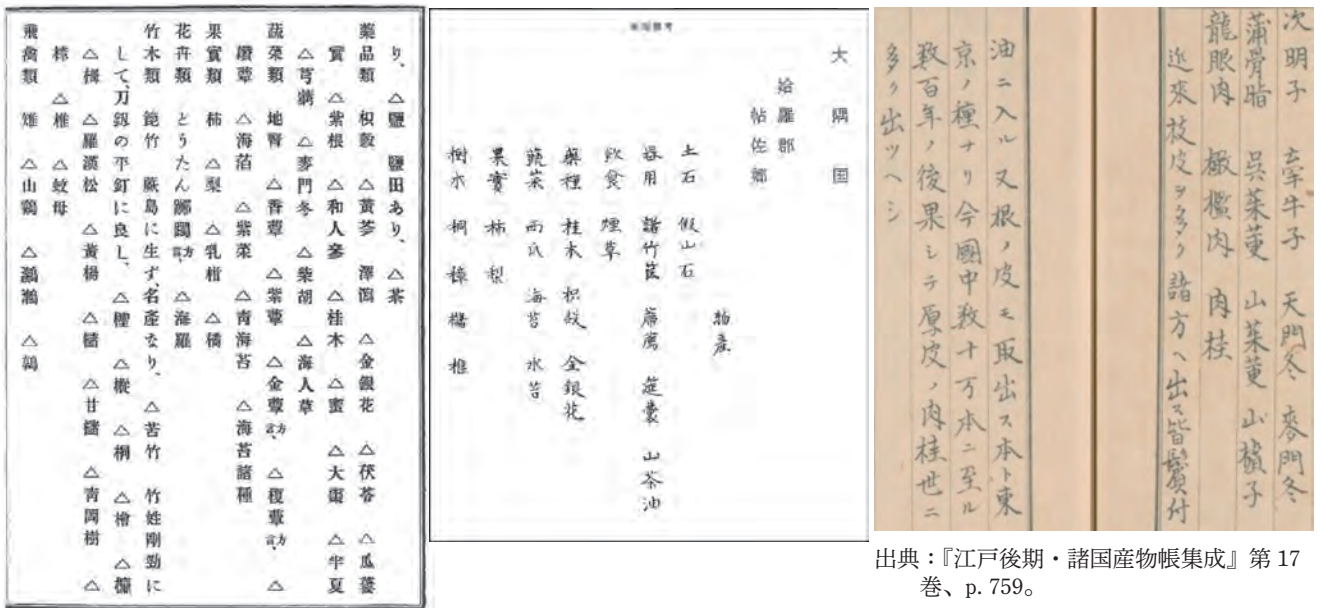 り、 △鹽 鹽田あり、 △茶
藥品類 枳殼 △黃芩 澤瀉 △金銀花 △茯苓 △瓜蔞
實 △紫根 △和人參 △桂木 △蜜 △大棗 △半夏
△芎藭 △麥門冬 △柴胡 △海人草
蔬菜類 地腎 △香蕈 △紫蕈 △金蕈方言、 △稷蕈方言、 △
鑽蕈 △海菭 △紫菜 △靑海苔 △海苔諸種
果實類 柿 △梨 △乳柑 △橘
花卉類 とうたん躑躅方言、 △海羅
竹木類 篦竹 厥島に生ず、名產なり、 △苦竹 竹姓剛勁に
して、刀釼の平釘に良し、 △樫 △樅 △桐 △檜 △櫧
△樟 △羅漢松 △黃楊 △櫨 △甘櫧 △靑岡樹 △
椋 △椎 △蚊母
飛禽類 雉 △山鷄 △鸂鶒 △鷸
大隅国
姶羅郡
帖佐郷
物産
土石 假山石
器用 諸竹筐 簾薦 莚嚢 山茶油
飲食 煙草
藥種 桂木 枳殼 金銀花
蔬菜 西瓜 海苔 水苔
果實 柿 梨
樹木 桐 樟 櫧 椎
次明子 牽牛子 天門冬 麥門冬
蒲骨脂 呉茱萸 山茱萸 山樝子
龍眼肉 橄欖肉 肉桂
近來枝皮ヲ多ク諸方ヘ出ス皆鬢付
油ニ入ル又根ノ皮モ取出ス本ト東
京ノ種ナリ今國中數十万本ニ至ル
數百年ノ後果シテ厚皮ノ肉桂世ニ
多ク出ツヘシ
出典：『江戸後期・諸国産物帳集成』第 17
巻、p. 759。